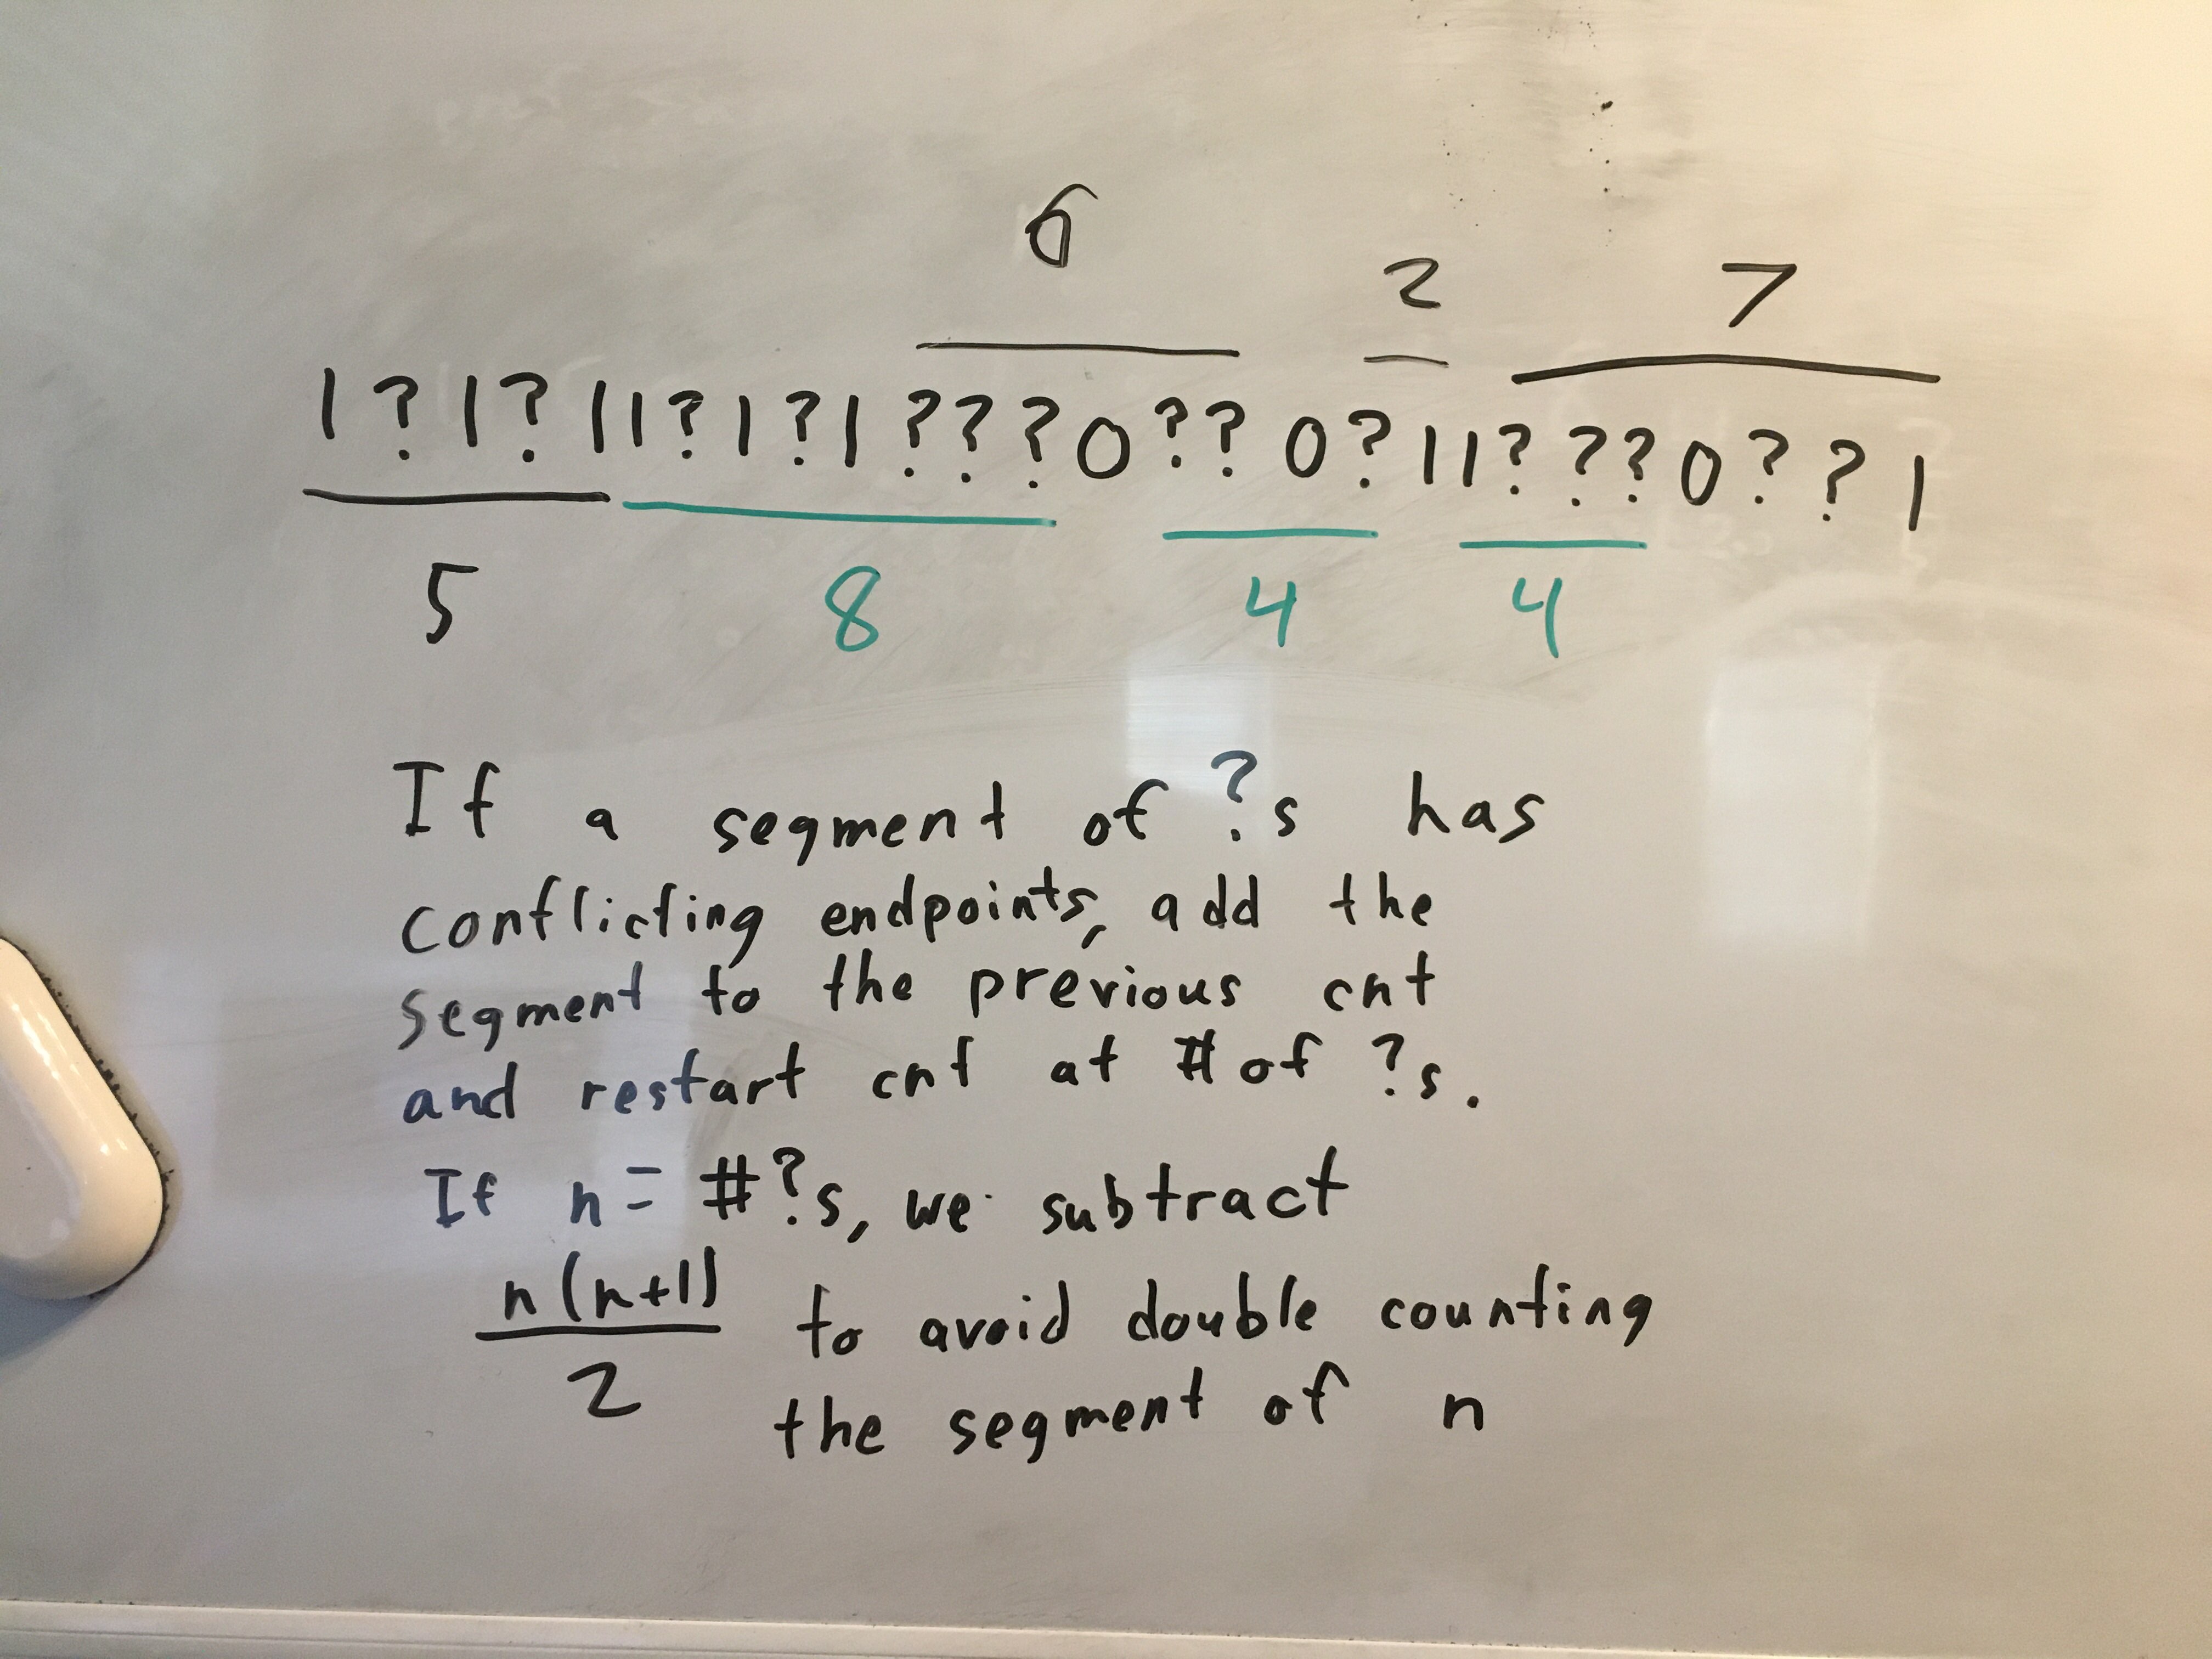 6 2 7
1?1?11?1?1???0??0?11???0??1
5 8 4 4
If a segment of ?s has
conflicting endpoints, add the
segment to the previous cnt
and restart cnt at # of ?s.
If n = #?s, we subtract
n(n+1)
2
to avoid double counting
the segment of n